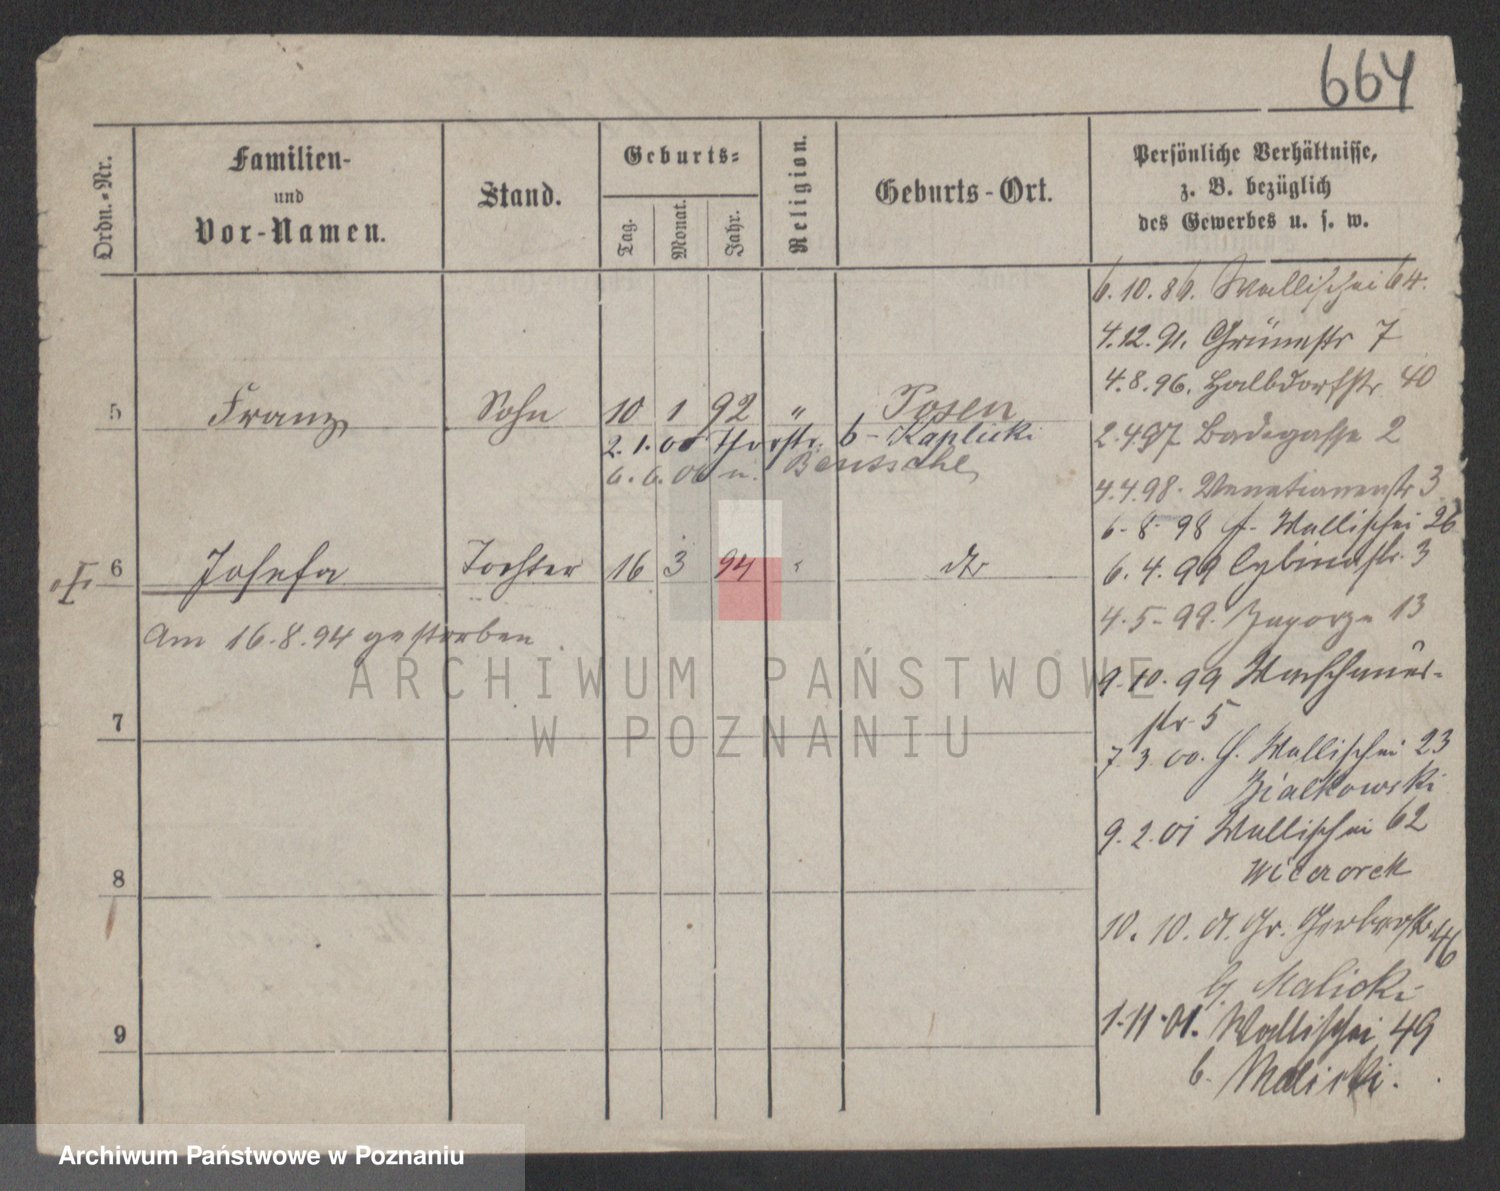 664
Ordn.-Nr.
Familien-
und
Vor-Namen.
Stand.
Geburts-
Tag.
Monat.
Jahr.
Religion.
Geburts-Ort.
Persönliche Verhältnisse,
z. B. bezüglich
des Gewerbes u. s. w.
6.10.86. Wallischei 64.
4.12.91. Grünestr 7
4.8.96. Halbdorfstr 40
5 Franz Sohn 10 1 92 " Posen
2.1.06 Thorstr. b- Kaplicki
6.6.06 u. Bentschel
2.4.97 Badegasse 2
4.4.98. Venetianerstr 3
6-8-98 Wallischei 26
6 Josefa Tochter 16 3 94 " dto
6.4.99 Cybinastr. 3
Am 16.8.94 gestorben.
4-5-99. Zagorze 13
9.10.99 Waschmüs-
str 5
7
7 3 00. H. Wallischei 23
Bialkowski
9.2.01 Wallischei 62
Wieczorek
8
10.10.01. Gr. Gerberstr. 46
b. Malicki
1-11-01. Wallischei 49
b. Malicki.
9
ARCHIWUM PAŃSTWOWE
W POZNANIU
Archiwum Państwowe w Poznaniu